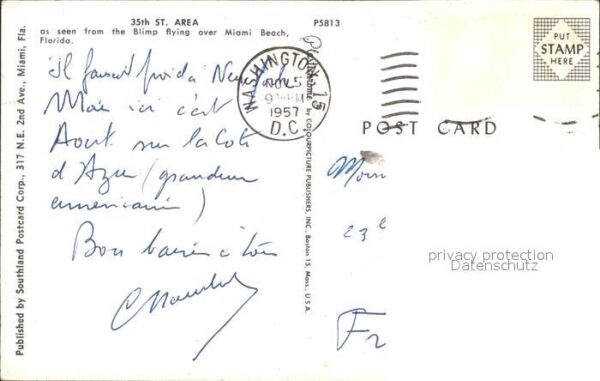 35th ST. AREA
P5813
as seen from the Blimp flying over Miami Beach,
Florida.
Published by Southland Postcard Corp., 317 N.E. 2nd Ave., Miami, Fla.
Il faisait froid à
Mais ici c'est
Aout sur la Cote
d'Azur (grandeur
americaine)
Bon baiser à tous
WASHINGTON 15
NOV 5
1957
D.C.
Plastichrome by COLOURPICTURE PUBLISHERS, INC., Boston 15, Mass., U.S.A.
PUT
STAMP
HERE
POST CARD
23
privacy protection
Datenschutz
Fr